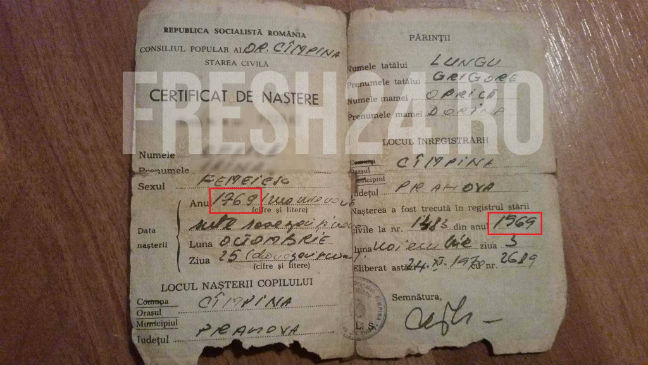 REPUBLICA SOCIALISTĂ ROMÂNIA
CONSILIUL POPULAR AL OR. CÎMPINA
STAREA CIVILĂ
CERTIFICAT DE NASTERE
Numele
Prenumele
Sexul FEMEIESC
Anu 1969
(cifre si litere)
Data nașterii
Luna OCTOMBRIE
Ziua 25
(cifre și litere)
LOCUL NAȘTERII COPILULUI
Comuna
Orașul CÎMPINA
Municipiul
Județul PRAHOVA
PĂRINȚII
Numele tatălui LUNGU
Prenumele tatălui GRIGORE
Numele mamei OPRICĂ
Prenumele mamei DORINA
LOCUL ÎNREGISTRĂRII
Comuna
Orașul CÎMPINA
Municipiul
Județul PRAHOVA
Nașterea a fost trecută în registrul stării
civile la nr. din anul 1969
luna noiembrie ziua 3
Eliberat astăzi nr. 2689
Semnătura,
L. S.
FRESH24.RO